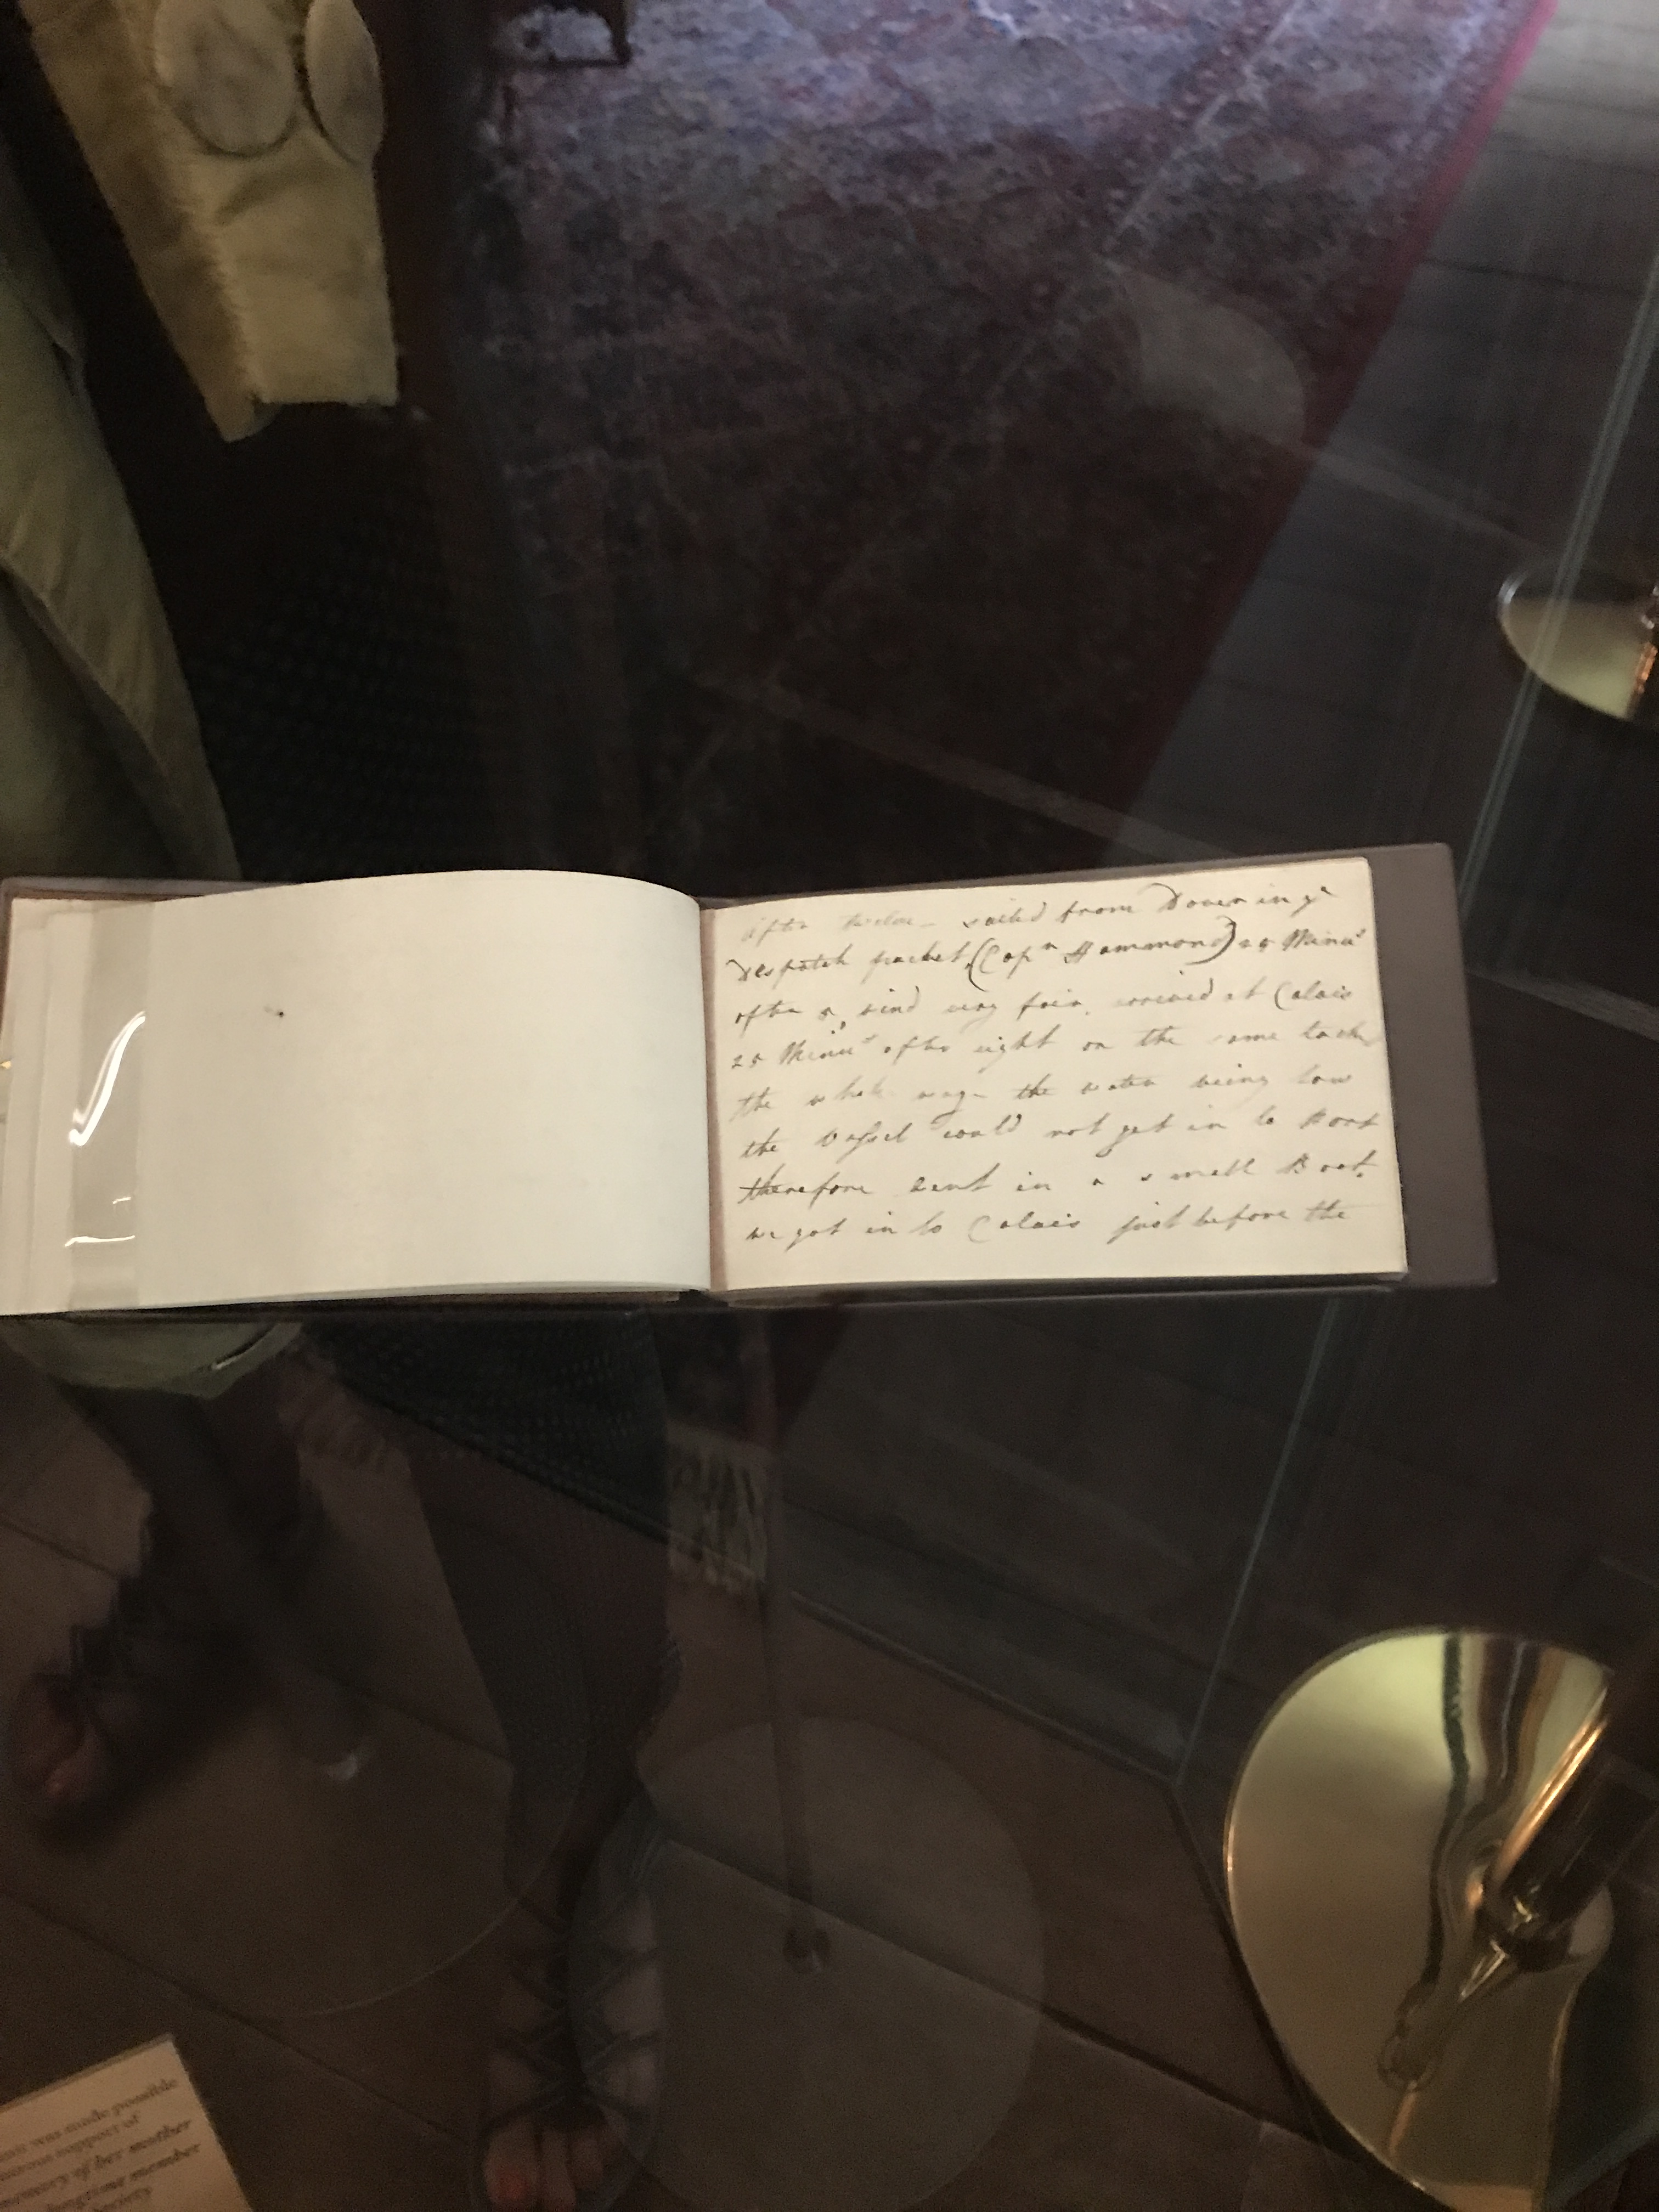 after twelve sailed from Dover in yᵉ
Despatch packet, (Capⁿ Hammond) 25 Minuˢ
after 5, wind very fair, arrived at Calais
25 Minuˢ after eight on the same tack
the whole way - the water being low
the Vessel could not get in to Port
therefore went in a small Boat.
we got in to Calais just before the
was made possible
support of
memory of her mother
longtime member
Society